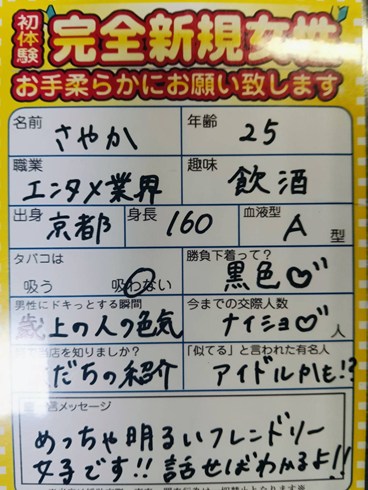 初体験 完全新規女性
お手柔らかにお願い致します
名前 さやか 年齢 25
職業 エンタメ業界 趣味 飲酒
出身 京都 身長 160 血液型 A 型
タバコは 吸う 吸わない 勝負下着って? 黒色♡
男性にドキっとする瞬間 歳上の人の色気 今までの交際人数 ナイショ♡ 人
店を知りましたか? だちの紹介 「似てる」と言われた有名人 アイドルかも!?
メッセージ
めっちゃ明るいフレンドリー
女子です!! 話せばわかるよ!!